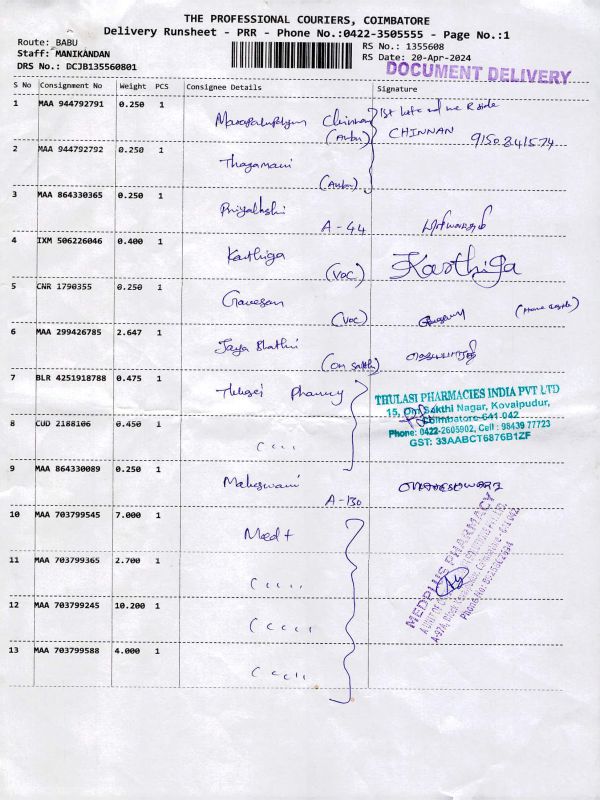 THE PROFESSIONAL COURIERS, COIMBATORE
Delivery Runsheet - PRR - Phone No.:0422-3505555 - Page No.:1
Route: BABU
Staff: MANIKANDAN
DRS No.: DCJB135560801
RS No.: 1355608
RS Date: 20-Apr-2024
DOCUMENT DELIVERY
S No Consignment No Weight PCS Consignee Details Signature
1 MAA 944792791 0.250 1 Chinnan
CHINNAN 9150841574
2 MAA 944792792 0.250 1 Thagamani
3 MAA 864330365 0.250 1 Priyalakshi
A-44
4 IXM 506226046 0.400 1 Karthiga
(VOC) Karthiga
5 CNR 1790355 0.250 1
(VOC)
6 MAA 299426785 2.647 1 Jaya Bharthi
(Om Sakthi)
7 BLR 4251918788 0.475 1 Thulasi
THULASI PHARMACIES INDIA PVT LTD
15, Om Sakthi Nagar, Kovaipudur,
Coimbatore-641 042
Phone: 0422-2605902, Cell: 98439 77723
GST: 33AABCT6876B1ZF
8 CUD 2188106 0.450 1
9 MAA 864330089 0.250 1 Maheswari
A-130
10 MAA 703799545 7.000 1 Med+
MEDPLUS PHARMACY
11 MAA 703799365 2.700 1
12 MAA 703799245 10.200 1
13 MAA 703799588 4.000 1